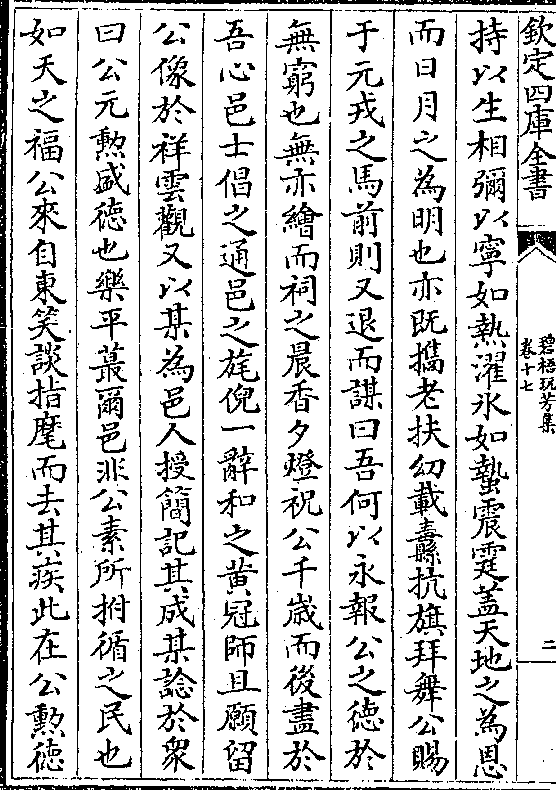 欽定四庫全書
碧梧玩芳集
卷十七
二
持以生相彌以寧如熱濯氷如蟄震霆蓋天地之為恩
而日月之為明也亦既攜老扶幼載纛抗旗拜舞公賜
于元戎之馬前則又退而謀曰吾何以永報公之德於
無窮也無亦繪而祠之晨香夕燈祝公千歲而後盡於
吾心邑士倡之通邑之旄倪一辭和之黄冠師且願留
公像於祥雲觀又以某為邑人授簡記其成某諗於衆
曰公元勲盛徳也樂平蕞爾邑非公素所拊循之民也
如天之福公來自東笑談指麾而去其疾此在公勲徳